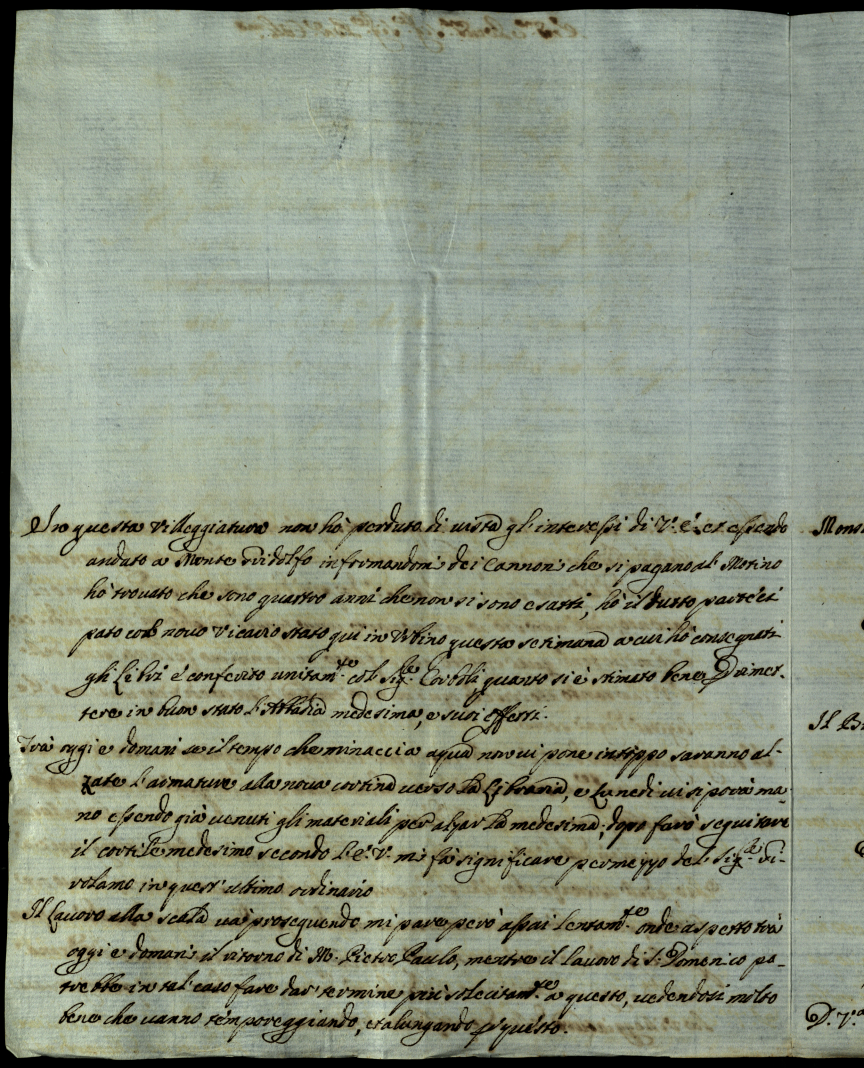 In questa villeggiatura non hò perduto di vista gl'interessi di V. E. et essendo
andato a Monte Ridolfo informandomi dei Cannoni che si pagano al Molino
hò trovato che sono quattro anni che non si sono esatti, hò il tutto parteci
pato col novo Vicario stato qui in Urbino questa setimana a cui hò consegnati
gli Libri e conferito unitam.te col Sig.re quanto si è stimato bene p rimet-
tere in buon stato l'Abbadia medesima, e suoi effetti.
Trà oggi e domani se il tempo che minaccia aqua non vi pone intoppo saranno al-
zate l'armature alla nova cortina verso la Libraria, e Lunedì vi si porà ma-
no essendo già venuti gli materiali per alzar la medesima, dopo farò seguitare
il cortile medesimo secondo l'E. V. mi fà significare per mezzo del Sig.re Gi-
rolamo in quest'ultimo ordinario
Il Lavoro alla scala và proseguendo mi pare però assai lentam.te onde aspetto trà
oggi e domani il ritorno di M. Pietro Paulo, mentre il lavoro di S. Domenico po-
trebbe in tal caso fare dar termine più solecitam.te a questo, vedendosi molto
bene che vanno temporeggiando, et alungando p questo.
Il